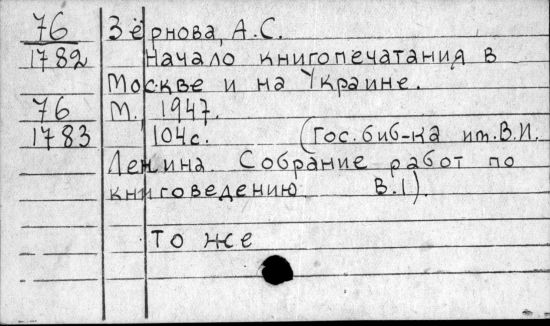 76 Зёрнова, А.С.
1782 Начало книгопечатания в
Москве и на Украине.
76 М., 1947.
1783 104с. (Гос. биб-ка им. В.И.
Ленина. Собрание работ по
книговедению В.1).
То же